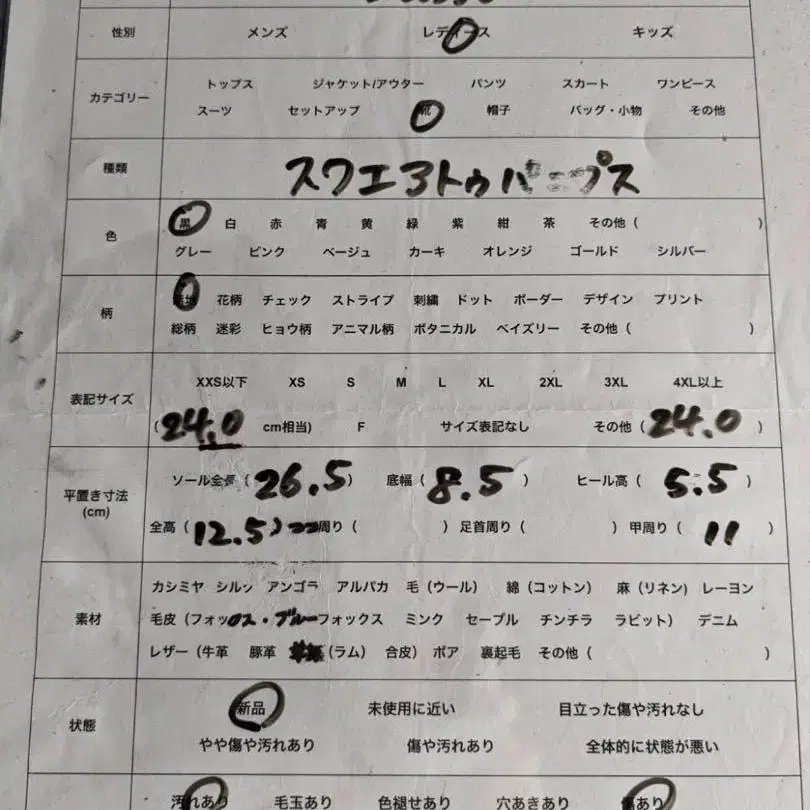 性別 メンズ レディース キッズ
カテゴリー
トップス ジャケット/アウター パンツ スカート ワンピース
スーツ セットアップ 靴 帽子 バッグ・小物 その他
種類 スクエアトゥパンプス
色
黒 白 赤 青 黄 緑 紫 紺 茶 その他( )
グレー ピンク ベージュ カーキ オレンジ ゴールド シルバー
柄
無地 花柄 チェック ストライプ 刺繍 ドット ボーダー デザイン プリント
総柄 迷彩 ヒョウ柄 アニマル柄 ボタニカル ペイズリー その他( )
表記サイズ
XXS以下 XS S M L XL 2XL 3XL 4XL以上
(24.0 cm相当) F サイズ表記なし その他(24.0)
平置き寸法
(cm)
ソール全長(26.5) 底幅(8.5) ヒール高(5.5)
全高(12.5) 周り( ) 足首周り( ) 甲周り(11)
素材
カシミヤ シルク アンゴラ アルパカ 毛(ウール) 綿(コットン) 麻(リネン) レーヨン
毛皮(フォックス・ブルーフォックス ミンク セーブル チンチラ ラビット) デニム
レザー(牛革 豚革 (ラム) 合皮) ボア 裏起毛 その他( )
状態
新品 未使用に近い 目立った傷や汚れなし
やや傷や汚れあり 傷や汚れあり 全体的に状態が悪い
汚れあり 毛玉あり 色褪せあり 穴あきあり 傷あり